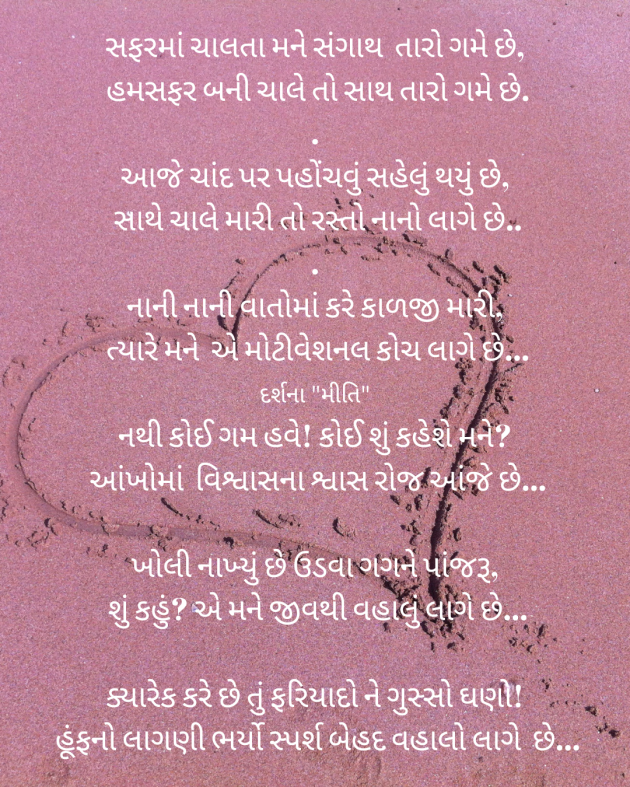 સફરમાં ચાલતા મને સંગાથ  તારો ગમે છે,
હમસફર બની ચાલે તો સાથ તારો ગમે છે.
.
આજે ચાંદ પર પહોંચવું સહેલું થયું છે,
સાથે ચાલે મારી તો રસ્તો નાનો લાગે છે..
.
નાની નાની વાતોમાં કરે કાળજી મારી,
ત્યારે મને  એ મોટીવેશનલ કોચ લાગે છે...
દર્શના "મીતિ"
નથી કોઈ ગમ હવે! કોઈ શું કહેશે મને?
આંખોમાં  વિશ્વાસના શ્વાસ રોજ આંજે છે...
ખોલી નાખ્યું છે ઉડવા ગગને પાંજરૂ,
શું કહું? એ મને જીવથી વહાલું લાગે છે...
ક્યારેક કરે છે તું ફરિયાદો ને ગુસ્સો ઘણો!
હૂંફનો લાગણી ભર્યો સ્પર્શ બેહદ વહાલો લાગે  છે...